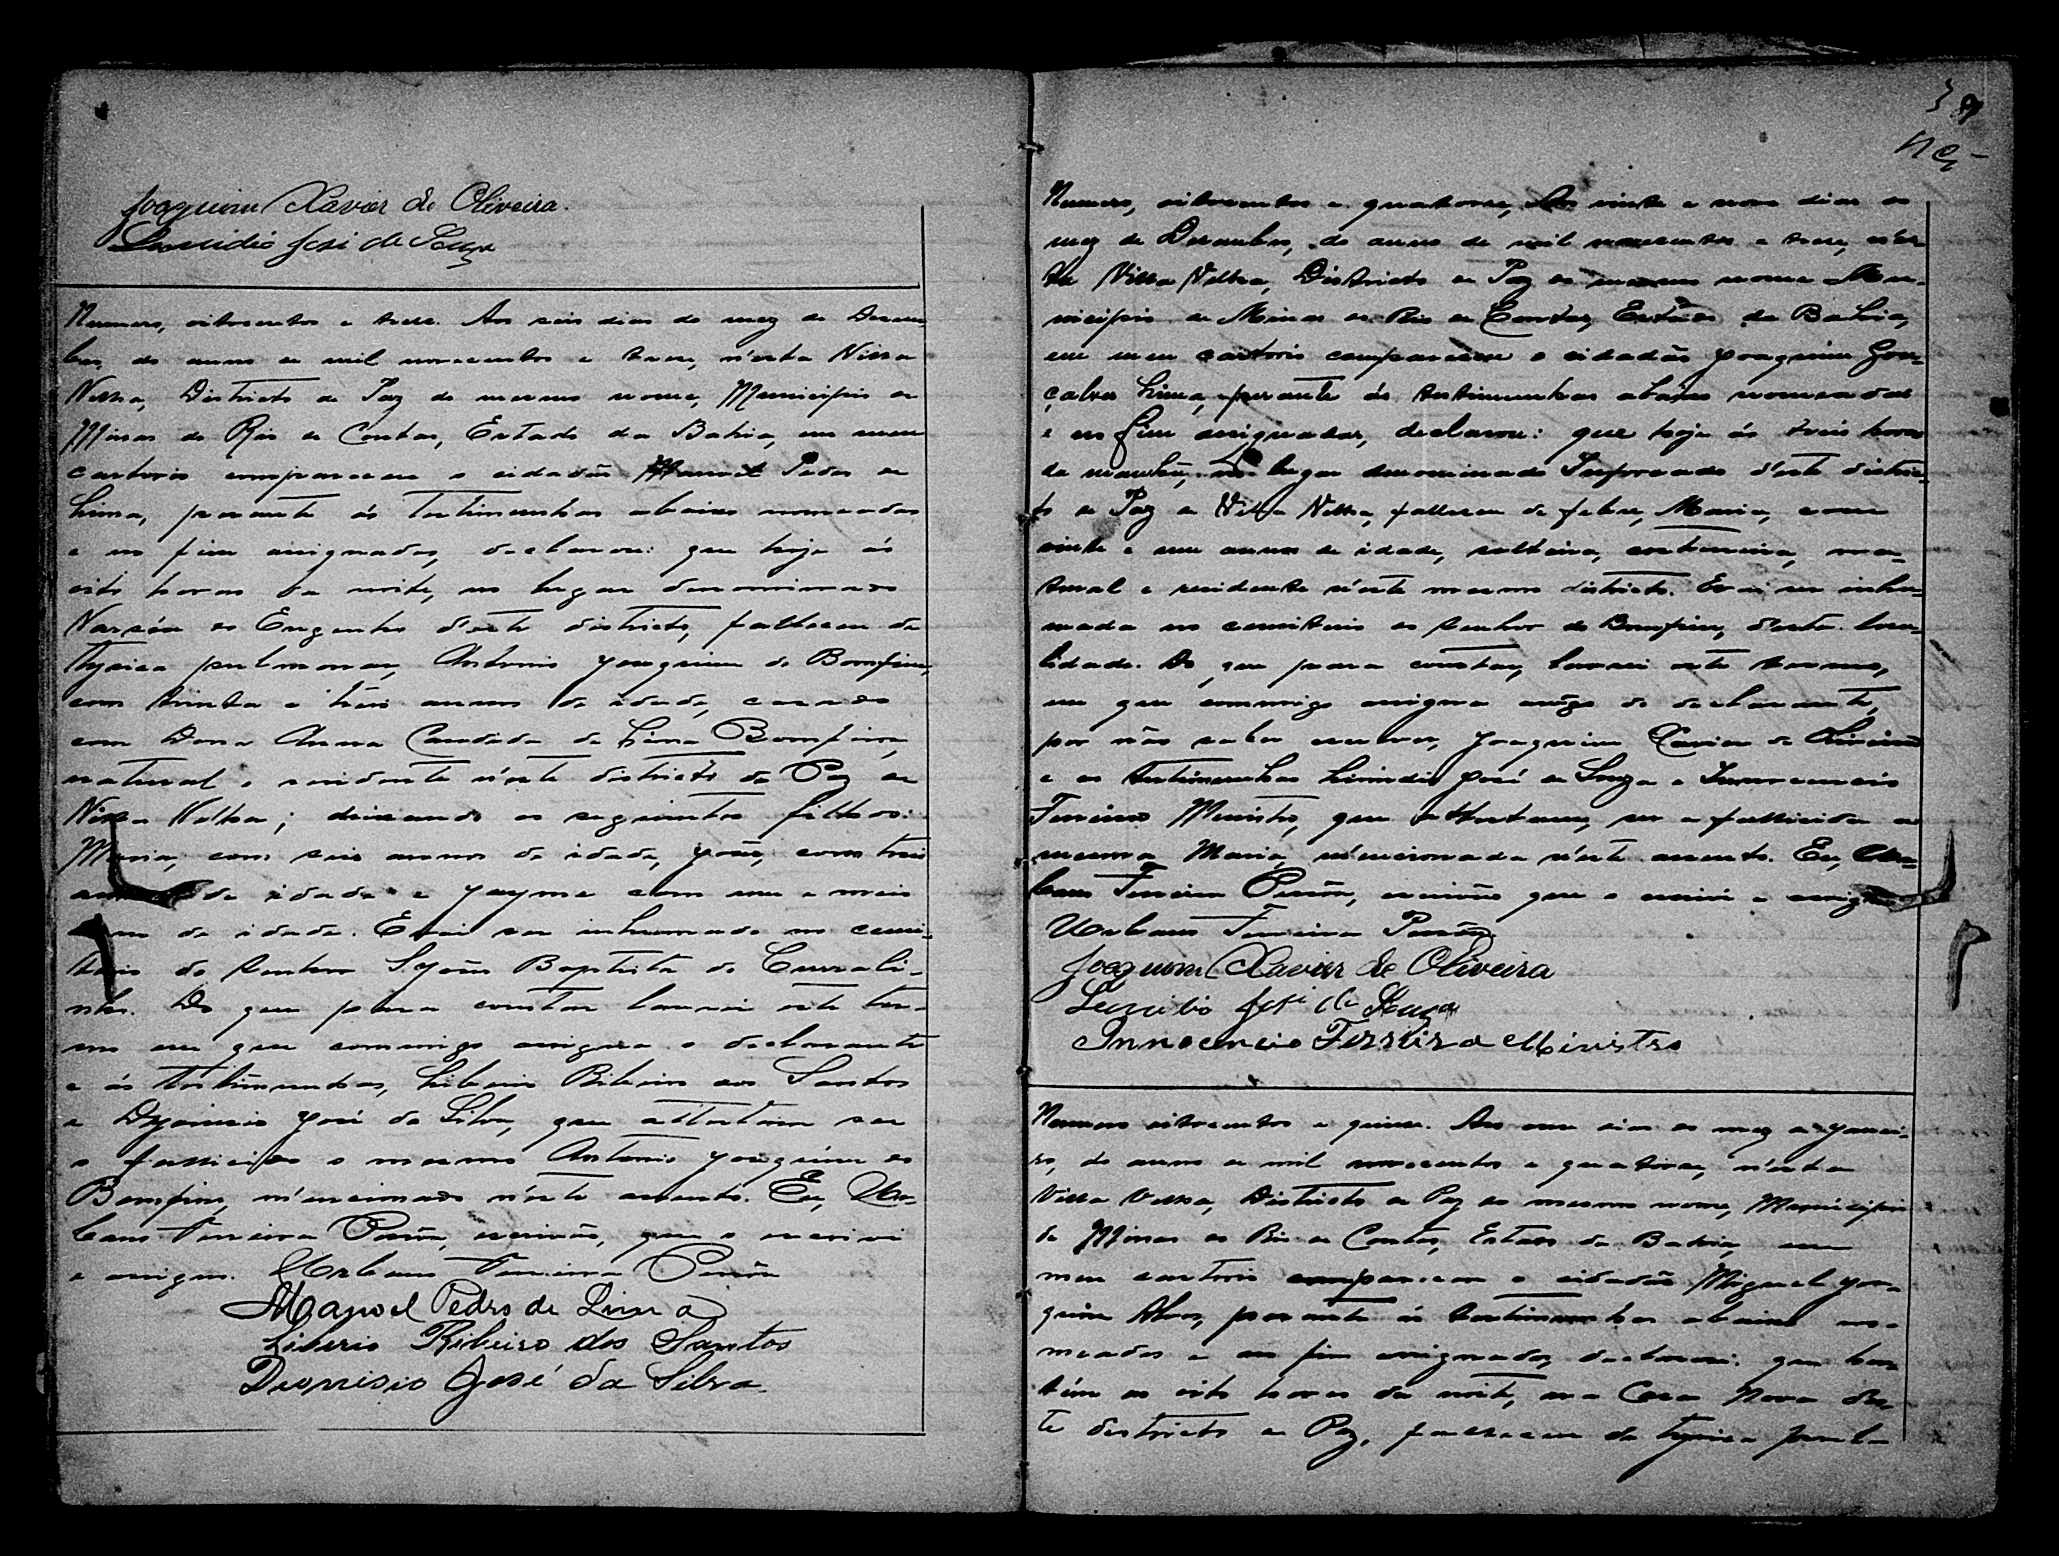 Joaquim Xavier de Oliveira.
Lucidio José de Souza
Numero, oitocentos e treze. Aos seis dias do mez de Dezem-
bro, do anno de mil novecentos e treze, n'esta Villa
Velha, Districto de Paz do mesmo nome, Municipio de
Minas do Rio de Contas, Estado da Bahia, em meu
cartorio compareceu o cidadão Manoel Pedro de
Lima, perante ás testimunhas abaixo nomeadas
e no fim assignadas, declarou: que hoje ás
oito horas da noite, no lugar denominado
do Engenho d'este districto, falleceu de
tysica pulmonar, Antonio Joaquim do Bomfim,
com trinta e três annos de idade, casado
com Dona Anna Candida de Lima Bomfim,
natural e residente n'este districto de Paz de
Villa Velha; deixando os seguintes filhos:
Maria, com seis annos de idade, João, com tres
annos de idade e Jayme com um e meio
anno de idade. E vai ser inhumado no cemi-
terio do Senhor S. João Baptista do Currali-
nho. Do que para constar lavrei este ter-
mo em que commigo assigna o declarante
e ás testimunhas, Liberio Ribeiro dos Santos
e Dyonisio José da Silva, que attestam ser
o fallecido o mesmo Antonio Joaquim do
Bomfim, mencionado n'este assento. Eu, Ur-
bano Ferreira escrivão, que o escrivi
e assigno. Urbano Ferreira
Manoel Pedro de Lima
Liberio Ribeiro dos Santos
Dionisio José da Silva.
Numero, oitocentos e quatorze, Aos vinte e nove dias do
mez de Dezembro, do anno de mil novecentos e treze, n'es-
ta Villa Velha, Districto de Paz do mesmo nome Mu-
nicipio de Minas do Rio de Contas, Estado da Bahia,
em meu cartorio compareceu o cidadão Joaquim Gon-
çalves Lima, perante ás testimunhas abaixo nomeadas
e no fim assignadas, declarou: que hoje ás treis horas
da manhã, no lugar denominado d'este distric-
to de Paz de Villa Velha, falleceu de febre, Maria, com
vinte e um annos de idade, solteira, costureira, na-
tural e residente n'este mesmo districto. E vai ser inhu-
mada no cemiterio do Senhor do Bomfim, desta loca-
lidade. Do que para constar, lavrei este termo,
em que commigo assigna a rogo do declarante,
por não saber escrever, Joaquim Xavier de Oliveira
e as testimunhas José de Souza e Innocencio
Ferreira Ministro, que attestam, ser a fallecida a
mesma Maria, mencionada n'este assento. Eu, Ur-
bano Ferreira escrivão que o escrivi e assigno
Urbano Ferreira
Joaquim Xavier de Oliveira
Lucidio José de Souza
Innocencio Ferreira Ministro
Numero oitocentos e quinze. Aos onze dias do mez de Janei-
ro, do anno de mil novecentos e quatorze, n'esta
Villa Velha, Districto de Paz do mesmo nome, Municipio
de Minas do Rio de Contas, Estado da Bahia, em
meu cartorio compareceu o cidadão Miguel Joa-
quim Alves, perante ás testimunhas abaixo no-
meadas e no fim assignadas, declarou: que hon-
tem as oito horas da noite, na Casa Nova des-
te districto de Paz, falleceu de tysica pul